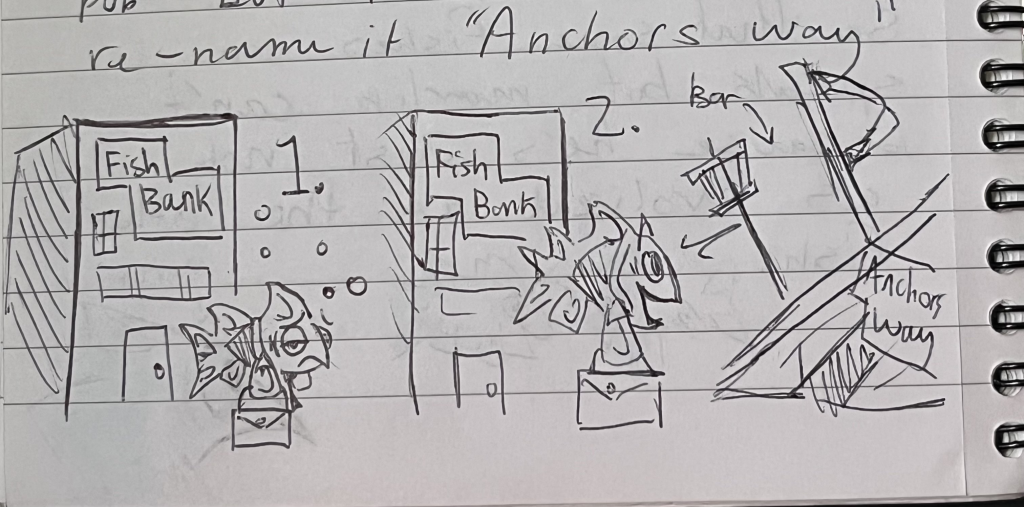 pub
re-name it "Anchors way"
Fish
Bank
1.
Fish
Bank
2.
Bar
Anchors
way